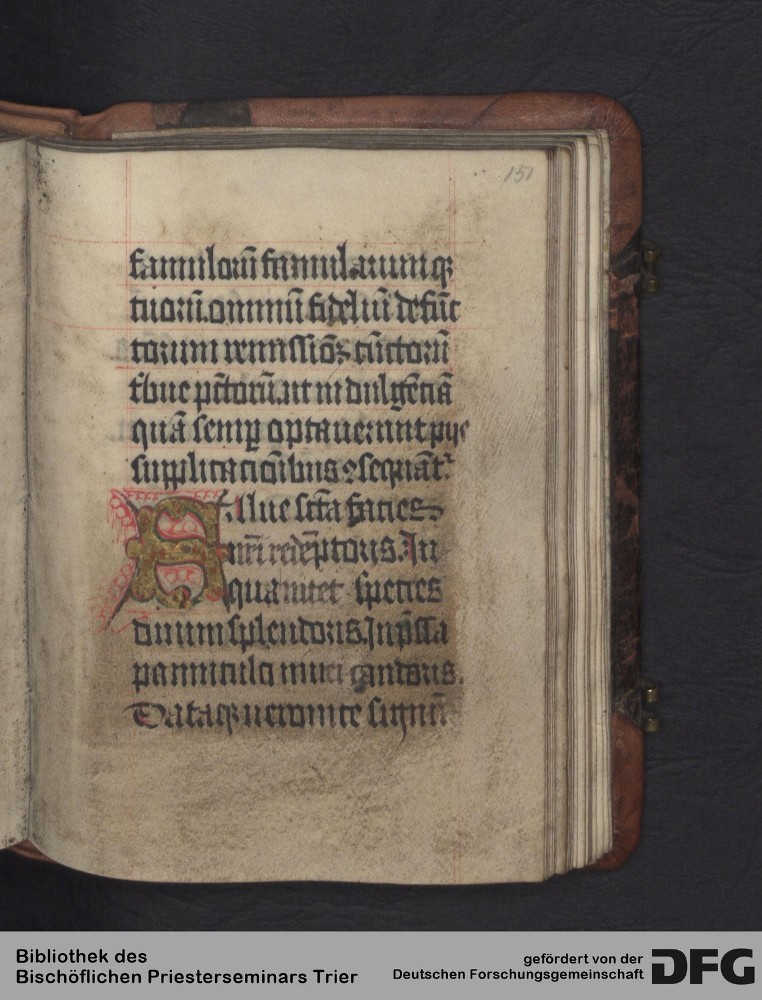 151
famulorū famularumq̄
tuorū. omniū fideliū defūc
torum remissionē cūctorū
tribue pctōrū. ut indulgēciā
quā semꝑ optauerunt pijs
supplicacionibus ꝯsequāt᷑
Salue scta facies
nrī redēptoris. In
qua nitet species
diuini splendoris. Inp̄ssa
panniculo niuei candoris.
Dataq̄ veronice signū
Bibliothek des
Bischöflichen Priesterseminars Trier
gefördert von der
Deutschen Forschungsgemeinschaft
DFG